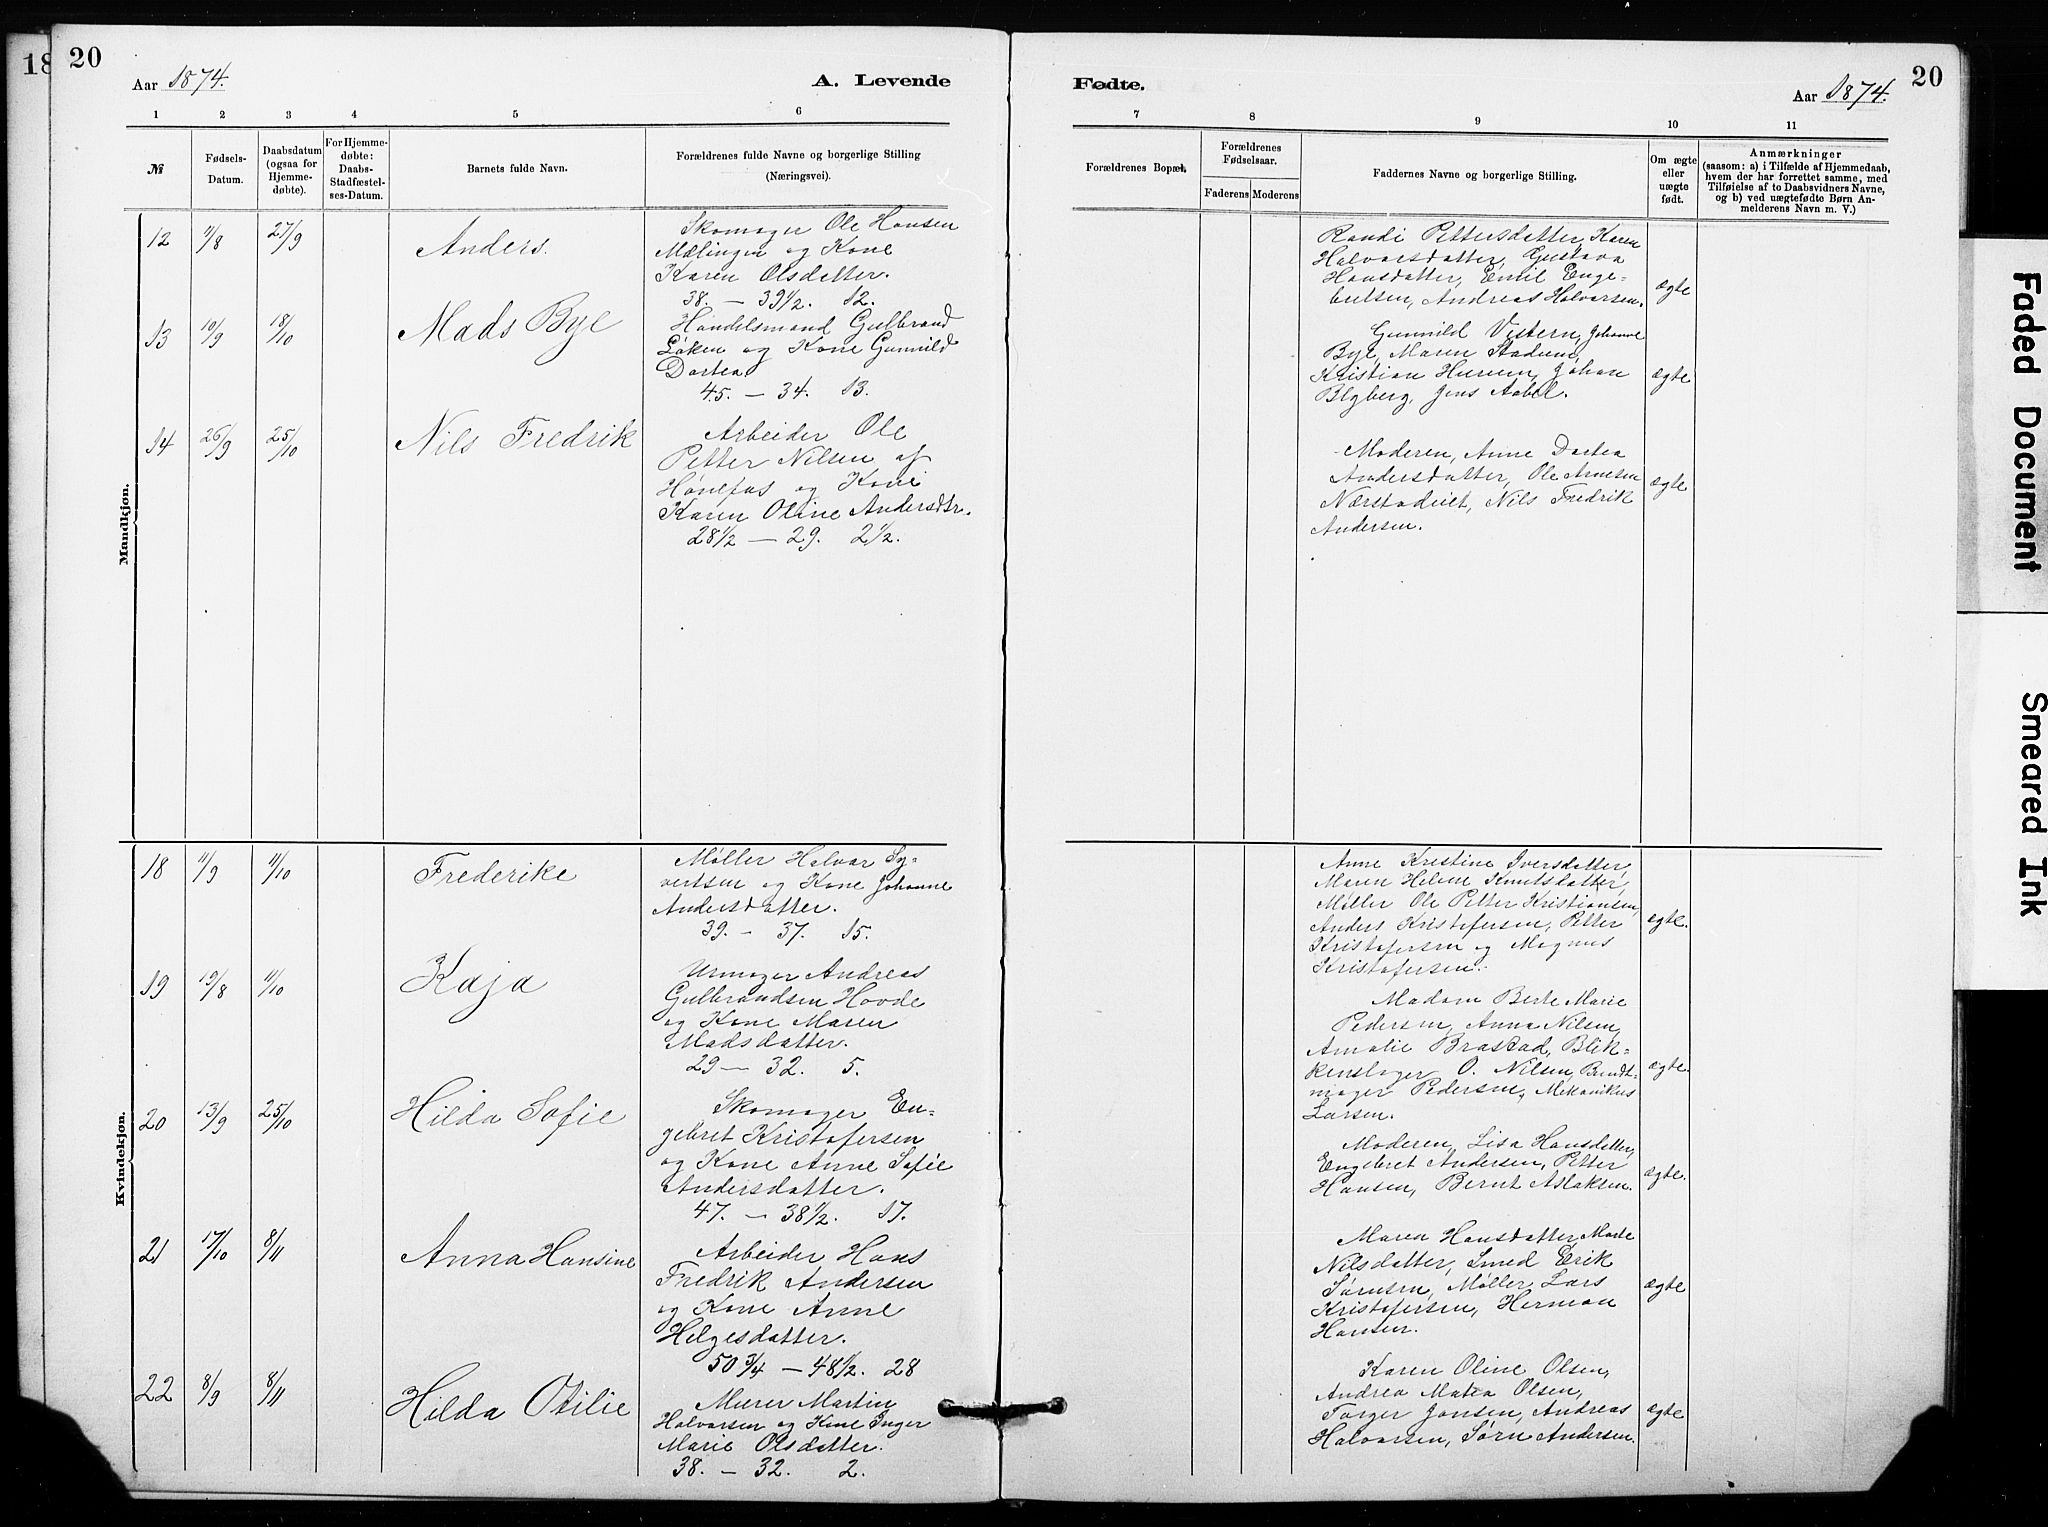 18
20
Aar 1874.
A. Levende
1 2 3 4 5 6
№
Fødsels-
Datum.
Daabsdatum
(ogsaa for
Hjemme-
døbte).
For Hjemme-
døbte:
Daabs-
Stadfæstel-
ses-Datum.
Barnets fulde Navn.
Forældrenes fulde Navne og borgerlige Stilling
(Næringsvei).
Mandkjøn.
12 11/8 27/9 Anders.
Skomager Ole Hansen
Mælingen og Kone
Karen Olsdatter.
38. — 39 1/2. 12.
13 10/9 18/10 Mads Bye
Handelsmand Gulbrand
Løken og Kone Gunnild
Dortea
45. — 34. 13.
14 26/9 25/10 Nils Fredrik
Arbeider Ole
Petter Nilsen af
Hønefos og Kone
Karen Oline Andersdtr.
28 1/2 — 29. 2 1/2.
Kvindekjøn.
18 11/9 11/10 Frederike
Møller Halvar Sy-
vertsen og Kone Johanne
Andersdatter.
39. — 37. 15.
19 19/8 11/10 Kaja
Urmager Andreas
Gulbrandsen Hovde
og Kone Maren
Madsdatter.
29 — 32. 5.
20 13/9 25/10 Hilda Sofie
Skomager En-
gebret Kristofersen
og Kone Anne Sofie
Andersdatter.
47. — 38 1/2. 17.
21 17/10 8/11 Anna Hansine
Arbeider Hans
Fredrik Andersen
og Kone Anne
Helgesdatter.
50 3/4 — 48 1/2. 28
22 8/9 8/11 Hilda Otilie
Murer Martin
Halvarsen og Kone Inger
Marie Olsdatter.
38. — 32. 2.
Fødte.
Aar 1874.
20
7 8 9 10 11
Forældrenes Bopæl.
Forældrenes
Fødselsaar.
Faderens Moderens
Faddernes Navne og borgerlige Stilling.
Om ægte
eller
uægte
født.
Anmærkninger
(saasom: a) i Tilfælde af Hjemmedaab,
hvem der har forrettet samme, med
Tilføielse af to Daabsvidners Navne,
og b) ved uægtefødte Børn An-
melderens Navn m. V.)
Randi Pettersdatter, Karen
Halvarsdatter, Gustava
Hansdatter, Emil Enge-
bretsen, Andreas Halvarsen. ægte
Gunnild Vestern, Johanne
Bye, Maren Stadum,
Kristian Hurum, Johan
Blyberg, Jens Aabel. ægte
Moderen, Anne Dortea
Andersdatter, Ole Arnesen
Nærstadeiet, Nils Fredrik
Andersen. ægte
Anne Kristine Iversdatter,
Maren Helene Knutsdatter,
Møller Ole Petter Kristiansen,
Anders Kristofersen, Petter
Kristofersen og Magnus
Kristofersen. ægte.
Madam Berte Marie
Pedersen, Anna Nilsen,
Amalie Brastad, Blik-
kenslager O. Nilsen, Bundt-
mager Pedersen, Mekanikus
Larsen. ægte.
Moderen, Lisa Hansdatter,
Engebret Andersen, Petter
Hansen, Bernt Aslaksen. ægte.
Maren Hansdatter, Marte
Nilsdatter, Smed Erik
Sørensen, Møller Lars
Kristofersen, Herman
Hansen. ægte
Karen Oline Olsen,
Andrea Matea Olsen,
Torger Jonsen, Andreas
Halvarsen, Sørn Andersen. ægte
Faded Document
Smeared Ink